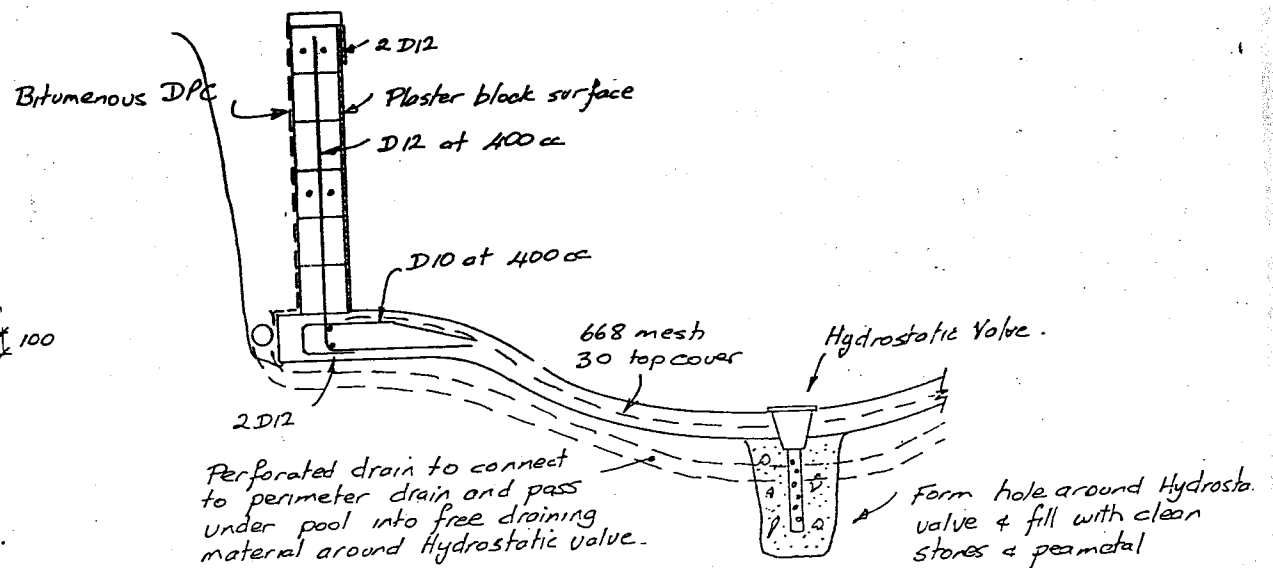 2 D12
Bitumenous DPC
Plaster block surface
D12 at 400 cc
D10 at 400 cc
100
668 mesh
30 top cover
Hydrostatic Valve.
2 D12
Perforated drain to connect
to perimeter drain and pass
under pool into free draining
material around Hydrostatic valve.
Form hole around Hydrosta.
valve & fill with clean
stones & peametal